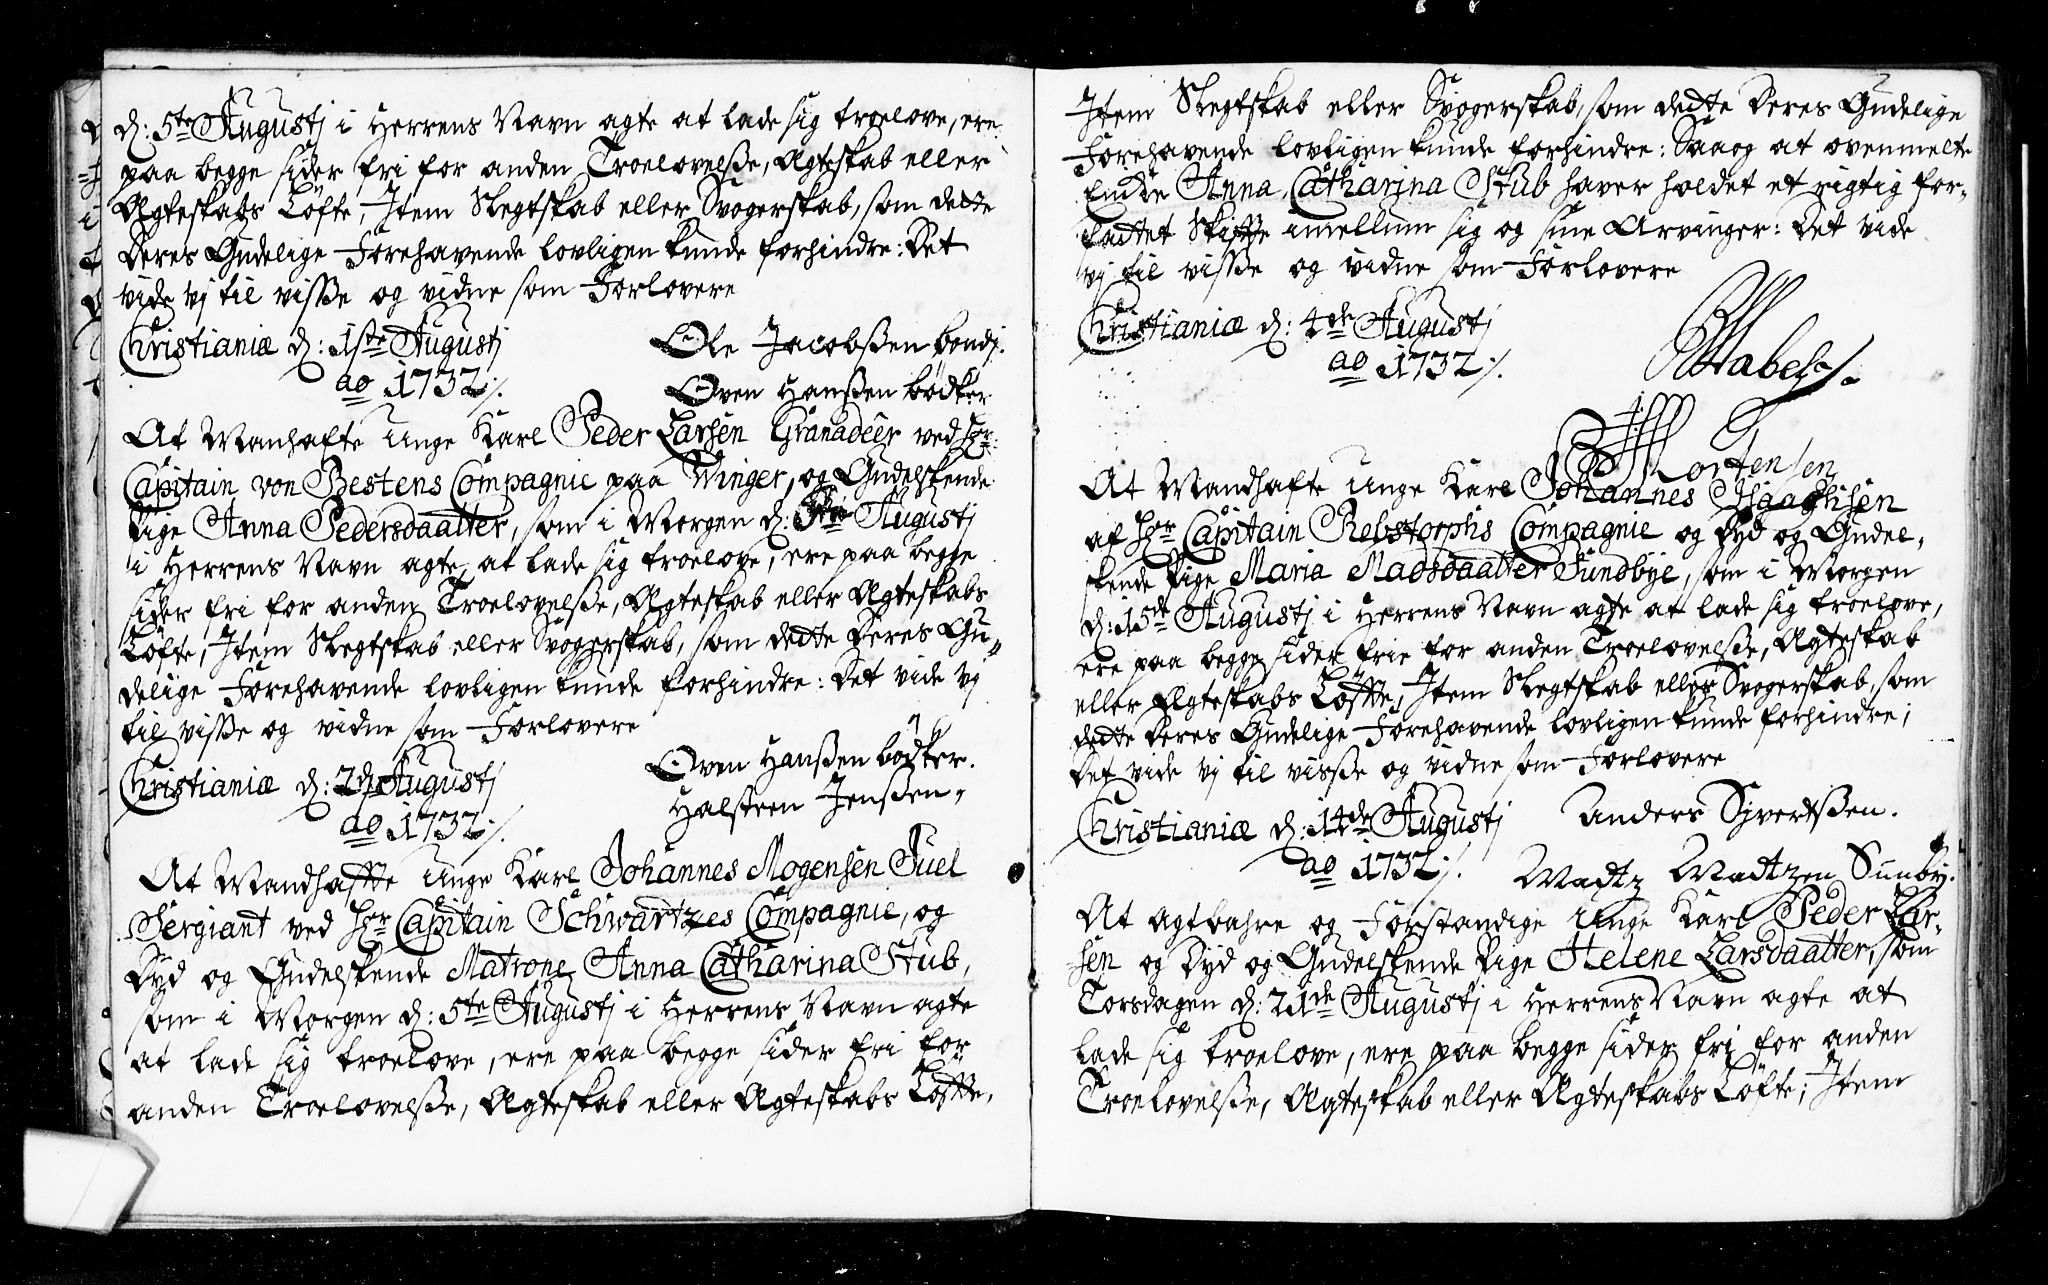 d: 5te Augustj i Herrens Navn agte at lade sig troelove, ere
paa begge sider fri for anden Troelovelsße, Ægteskab eller
Ægteskabs Løfte, Item Slegtskab eller Svogerskab, som dette
Deres Gudelige Forehavende lovligen kunde forhindre: Det
vide vj til visße og vidne som Forlovere
Christianiæ d: 1ste Augustj Ole Jacobßen bondj.
ao 1732 ⁒. Oven Hanßen bödker
At Manhafte Unge Karl Peder Larsen Granadeer ved Hr:
Capitain von Bestens Compagnie paa Winger, og Gudelskende
Pige Anna Pedersdaatter, som i Morgen d: Augustj
i Herrens Navn agte, at lade sig troelove, ere paa begge
sider fri for anden Troelovelsße, Ægteskab eller Ægteskabs
Løfte, Item Slegtskab eller Svogerskab, som dedte Deres Gu-
delige Forehavende lovligen kunde forhindre: Det vide vj
til visße og vidne som Forlovere
Oven Hanßen bödker.
Christianiæ d: 2den Augustj Halsteen Jenßen
ao 1732 ⁒.
At Mandhaftte Unge Karl Johannes Mogensen Juel
Sergiant ved Hr Capitain Schwartzes Compagnie, og
Dyd og Gudelskende Matrone Anna Catharina Stub,
som i Morgen d: 5te Augustj i Herrens Navn agte
at lade sig troelove, ere paa begge sider fri for
anden Troelovelsße, Ægteskab eller Ægteskabs Løftte,
Item Slegtskab eller Svogerskab, som dedte Deres Gudelige
Forehavende lovligen kunde forhindre: Saa og at ovenmelte
Enke Anna Catharina Stub haver holdet et rigtig for-
fadtet Skiftte imellum sig og sine Arvinger: Det vide
vj til visße og vidne som Forlovere
Christianiæ d: 4de Augustj
ao 1732 ⁒.
Mortensen
At Mandhafte Unge Karl Johannes Isaachsen
af Hr Capitain Rebstorphs Compagnie og Dyd og Gudel-
skende Pige Maria Madsdaatter Sundbye, som i Morgen
d: 15de Augustj i Herrens Navn agte at lade sig troelove,
ere paa begge sider frie for anden Troelovelsße, Ægteskab
eller Ægteskabs Løftte, Item Slegtskab eller Svogerskab, som
dedte Deres Gudelige Forehavende lovligen kunde forhindre;
Det vide vj til visße og vidne som Forlovere
Christianiæ d: 14de Augustj Anders Sjvertßen.
ao 1732 ⁒. Madtz Madtzen Sunby.
At Agtbahre og Forstandige Unge Karl Peder Lar-
sen og Dyd og Gudelskende Pige Helene Larsdaatter, som
Torsdagen d: 21de Augustj i Herrens Navn agte at
lade sig troelove, ere paa begge sider fri for anden
Troelovelsße, Ægteskab eller Ægteskabs Løfte; Item